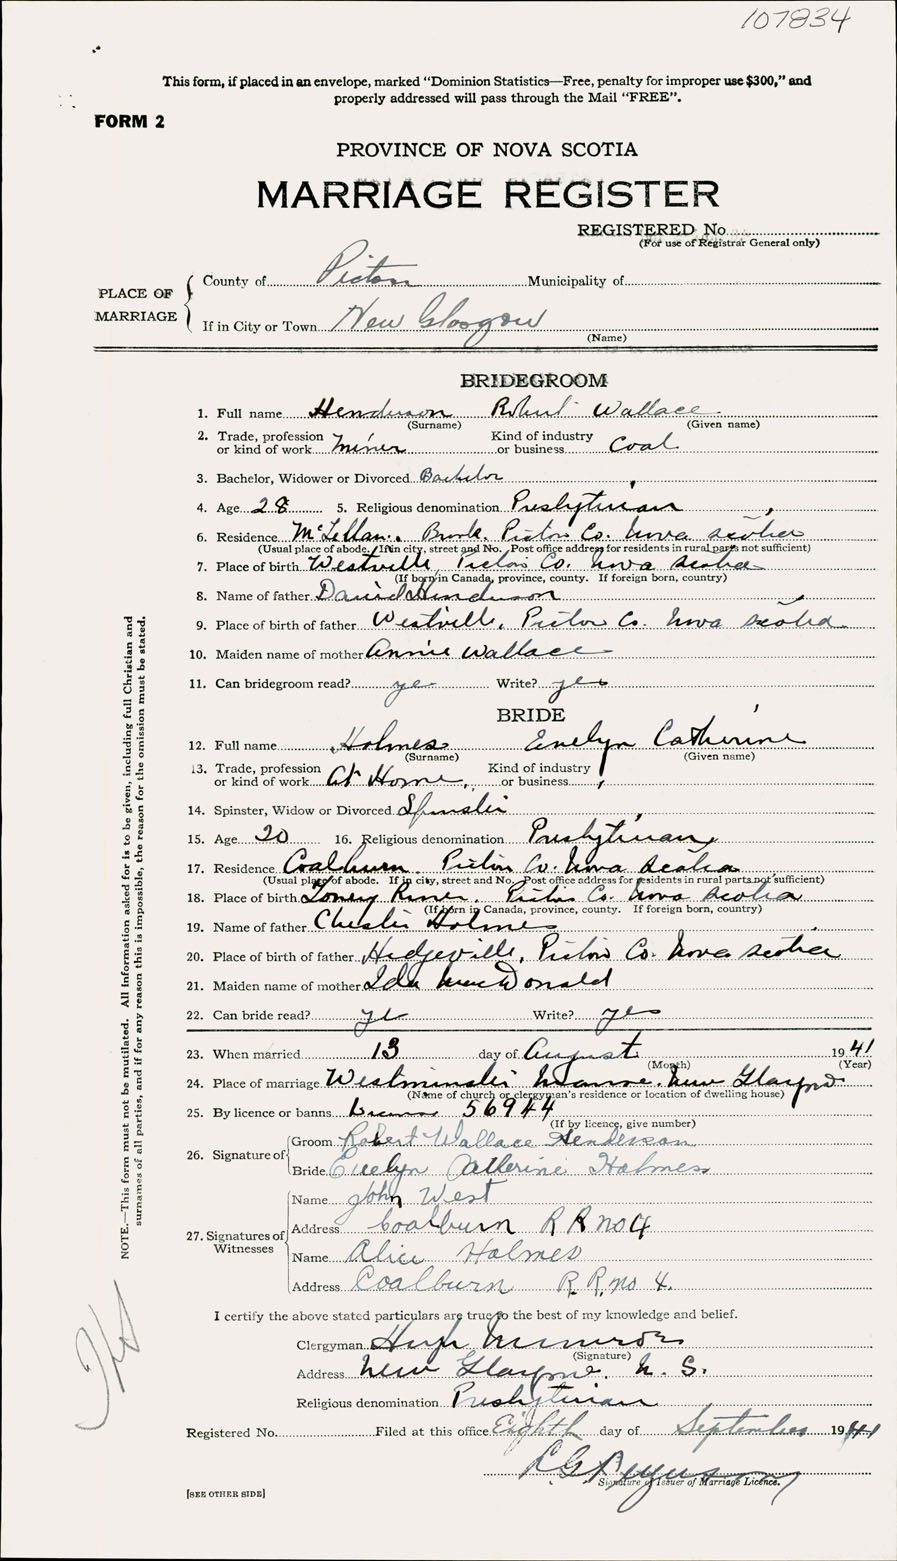 107834
This form, if placed in an envelope, marked "Dominion Statistics—Free, penalty for improper use $300," and
properly addressed will pass through the Mail "FREE".
FORM 2
PROVINCE OF NOVA SCOTIA
MARRIAGE REGISTER
REGISTERED No
(For use of Registrar General only)
PLACE OF MARRIAGE
County of Pictou Municipality of
If in City or Town New Glasgow
(Name)
BRIDEGROOM
1. Full name Henderson Robert Wallace
(Surname) (Given name)
2. Trade, profession or kind of work Miner Kind of industry or business Coal
3. Bachelor, Widower or Divorced Bachelor
4. Age 28 5. Religious denomination Presbyterian
6. Residence McLellan. Brook. Pictou Co. Nova Scotia
(Usual place of abode. If in city, street and No. Post office address for residents in rural parts not sufficient)
7. Place of birth Westville, Pictou Co. Nova Scotia
(If born in Canada, province, county. If foreign born, country)
8. Name of father David Henderson
9. Place of birth of father Westville, Pictou Co. Nova Scotia
10. Maiden name of mother Annie Wallace
11. Can bridegroom read? yes Write? yes
BRIDE
12. Full name Holmes Evelyn Catherine
(Surname) (Given name)
13. Trade, profession or kind of work At Home Kind of industry or business
14. Spinster, Widow or Divorced Spinster
15. Age 20 16. Religious denomination Presbyterian
17. Residence Coalburn Pictou Co. Nova Scotia
(Usual place of abode. If in city, street and No. Post office address for residents in rural parts not sufficient)
18. Place of birth Toney River. Pictou Co. Nova Scotia
(If born in Canada, province, county. If foreign born, country)
19. Name of father Chester Holmes
20. Place of birth of father Hedgeville, Pictou Co. Nova Scotia
21. Maiden name of mother Ida MacDonald
22. Can bride read? yes Write? yes
23. When married 13 day of August 1941
(Month) (Year)
24. Place of marriage Westminster Manse. New Glasgow
(Name of church or clergyman's residence or location of dwelling house)
25. By licence or banns 56944
(If by licence, give number)
26. Signature of
Groom Robert Wallace Henderson
Bride Evelyn Catherine Holmes
27. Signatures of Witnesses
Name John West
Address Coalburn R R no 4
Name Alice Holmes
Address Coalburn R. R. no 4.
I certify the above stated particulars are true to the best of my knowledge and belief.
Clergyman Hugh Munroe
(Signature)
Address New Glasgow. N. S.
Religious denomination Presbyterian
Registered No. Filed at this office Eighth day of September 1941
Signature of Issuer of Marriage Licence.
[SEE OTHER SIDE]
NOTE.—This form must not be mutilated. All Information asked for is to be given, including full Christian and
surnames of all parties, and if for any reason this is impossible, the reason for the omission must be stated.